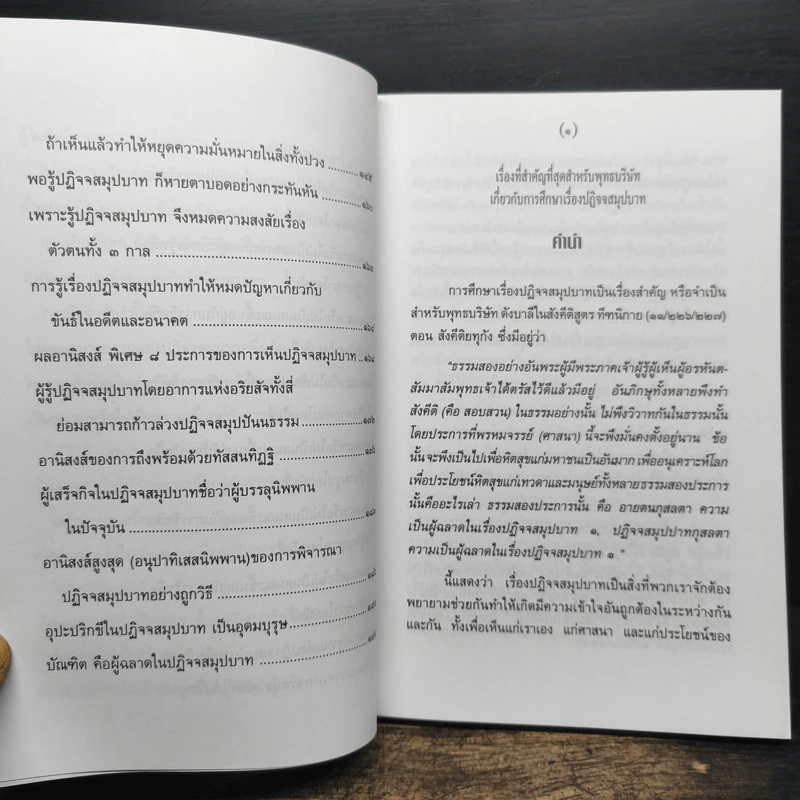 ถ้าเห็นแล้วทำให้หยุดความมั่นหมายในสิ่งทั้งปวง .......... ๑๔๕
พอรู้ปฏิจจสมุปบาท ก็หายตาบอดอย่างกระทันหัน .......... ๑๖๐
เพราะรู้ปฏิจจสมุปบาท จึงหมดความสงสัยเรื่อง
ตัวตนทั้ง ๓ กาล ..............................
การรู้เรื่องปฏิจจสมุปบาททำให้หมดปัญหาเกี่ยวกับ
ขันธ์ในอดีตและอนาคต .............................. ๑๖๔
ผลอานิสงส์ พิเศษ ๘ ประการของการเห็นปฏิจจสมุปบาท .. ๑๖๔
ผู้รู้ปฏิจจสมุปบาทโดยอาการแห่งอริยสัจทั้งสี่
ย่อมสามารถก้าวล่วงปฏิจจสมุปปันนธรรม ..........
อานิสงส์ของการถึงพร้อมด้วยทัสสนทิฏฐิ ..............
ผู้เสร็จกิจในปฏิจจสมุปบาทชื่อว่าผู้บรรลุนิพพาน
ในปัจจุบัน ..............................
อานิสงส์สูงสุด (อนุปาทิเสสนิพพาน)ของการพิจารณา
ปฏิจจสมุปบาทอย่างถูกวิธี ....................
อุปะปริกขีในปฏิจจสมุปบาท เป็นอุดมบุรุษ ..............
บัณฑิต คือผู้ฉลาดในปฏิจจสมุปบาท ....................
(๑)
เรื่องที่สำคัญที่สุดสำหรับพุทธบริษัท
เกี่ยวกับการศึกษาเรื่องปฏิจจสมุปบาท
คำนำ
การศึกษาเรื่องปฏิจจสมุปบาทเป็นเรื่องสำคัญ หรือจำเป็น
สำหรับพุทธบริษัท ดังบาลีในสังคีติสูตร ทีฆนิกาย (๑๑/๒๒๖/๒๒๗)
ตอน สังคีติยทุกัง ซึ่งมีอยู่ว่า
"ธรรมสองอย่างอันพระผู้มีพระภาคเจ้าผู้รู้ผู้เห็นผู้อรหันต-
สัมมาสัมพุทธเจ้าได้ตรัสไว้ดีแล้วมีอยู่ อันภิกษุทั้งหลายพึงทำ
สังคีติ (คือ สอบสวน) ในธรรมอย่างนั้น ไม่พึงวิวาทกันในธรรมนั้น
โดยประการที่พรหมจรรย์ (ศาสนา) นี้จะพึงมั่นคงตั้งอยู่นาน ข้อ
นั้นจะพึงเป็นไปเพื่อหิตสุขแก่มหาชนเป็นอันมาก เพื่ออนุเคราะห์โลก
เพื่อประโยชน์หิตสุขแก่เทวดาและมนุษย์ทั้งหลายธรรมสองประการ
นั้นคืออะไรเล่า ธรรมสองประการนั้น คือ อายตนกุสลตา ความ
เป็นผู้ฉลาดในเรื่องปฏิจจสมุปบาท ๑, ปฏิจจสมุปปาทกุสลตา
ความเป็นผู้ฉลาดในเรื่องปฏิจจสมุปบาท ๑ "
นี้แสดงว่า เรื่องปฏิจจสมุปบาทเป็นสิ่งที่พวกเราจักต้อง
พยายามช่วยกันทำให้เกิดมีความเข้าใจอันถูกต้องในระหว่างกัน
และกัน ทั้งเพื่อเห็นแก่เราเอง แก่ศาสนา และแก่ประโยชน์ของ